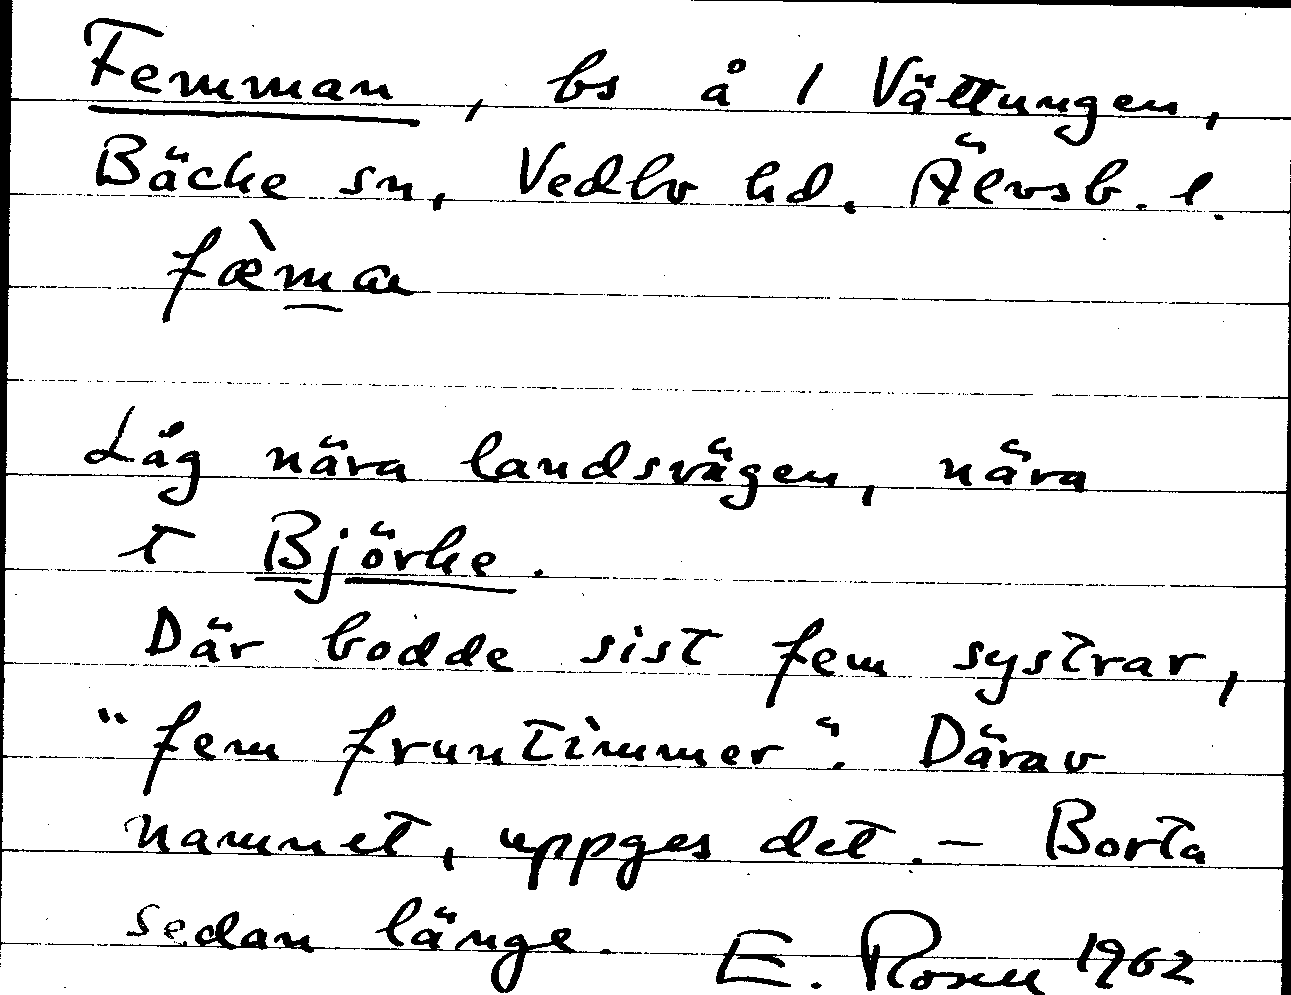 Femman, bs å 1 Vättungen,
Bäcke sn, Vedbo hd. Älvsb. l.
fæ̀man
Låg nära landsvägen, nära
t Björke.
Där bodde sist fem systrar,
"fem fruntimmer". Därav
namnet, uppges det. – Borta
sedan länge. E. Rosell 1962